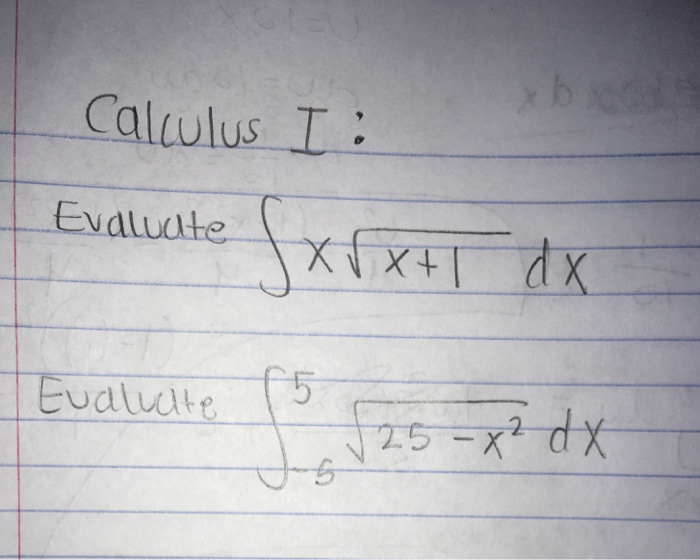 Calculus I:
Evaluate ∫x√(x+1) dx
Evaluate ∫₋₅⁵ √(25-x²) dx